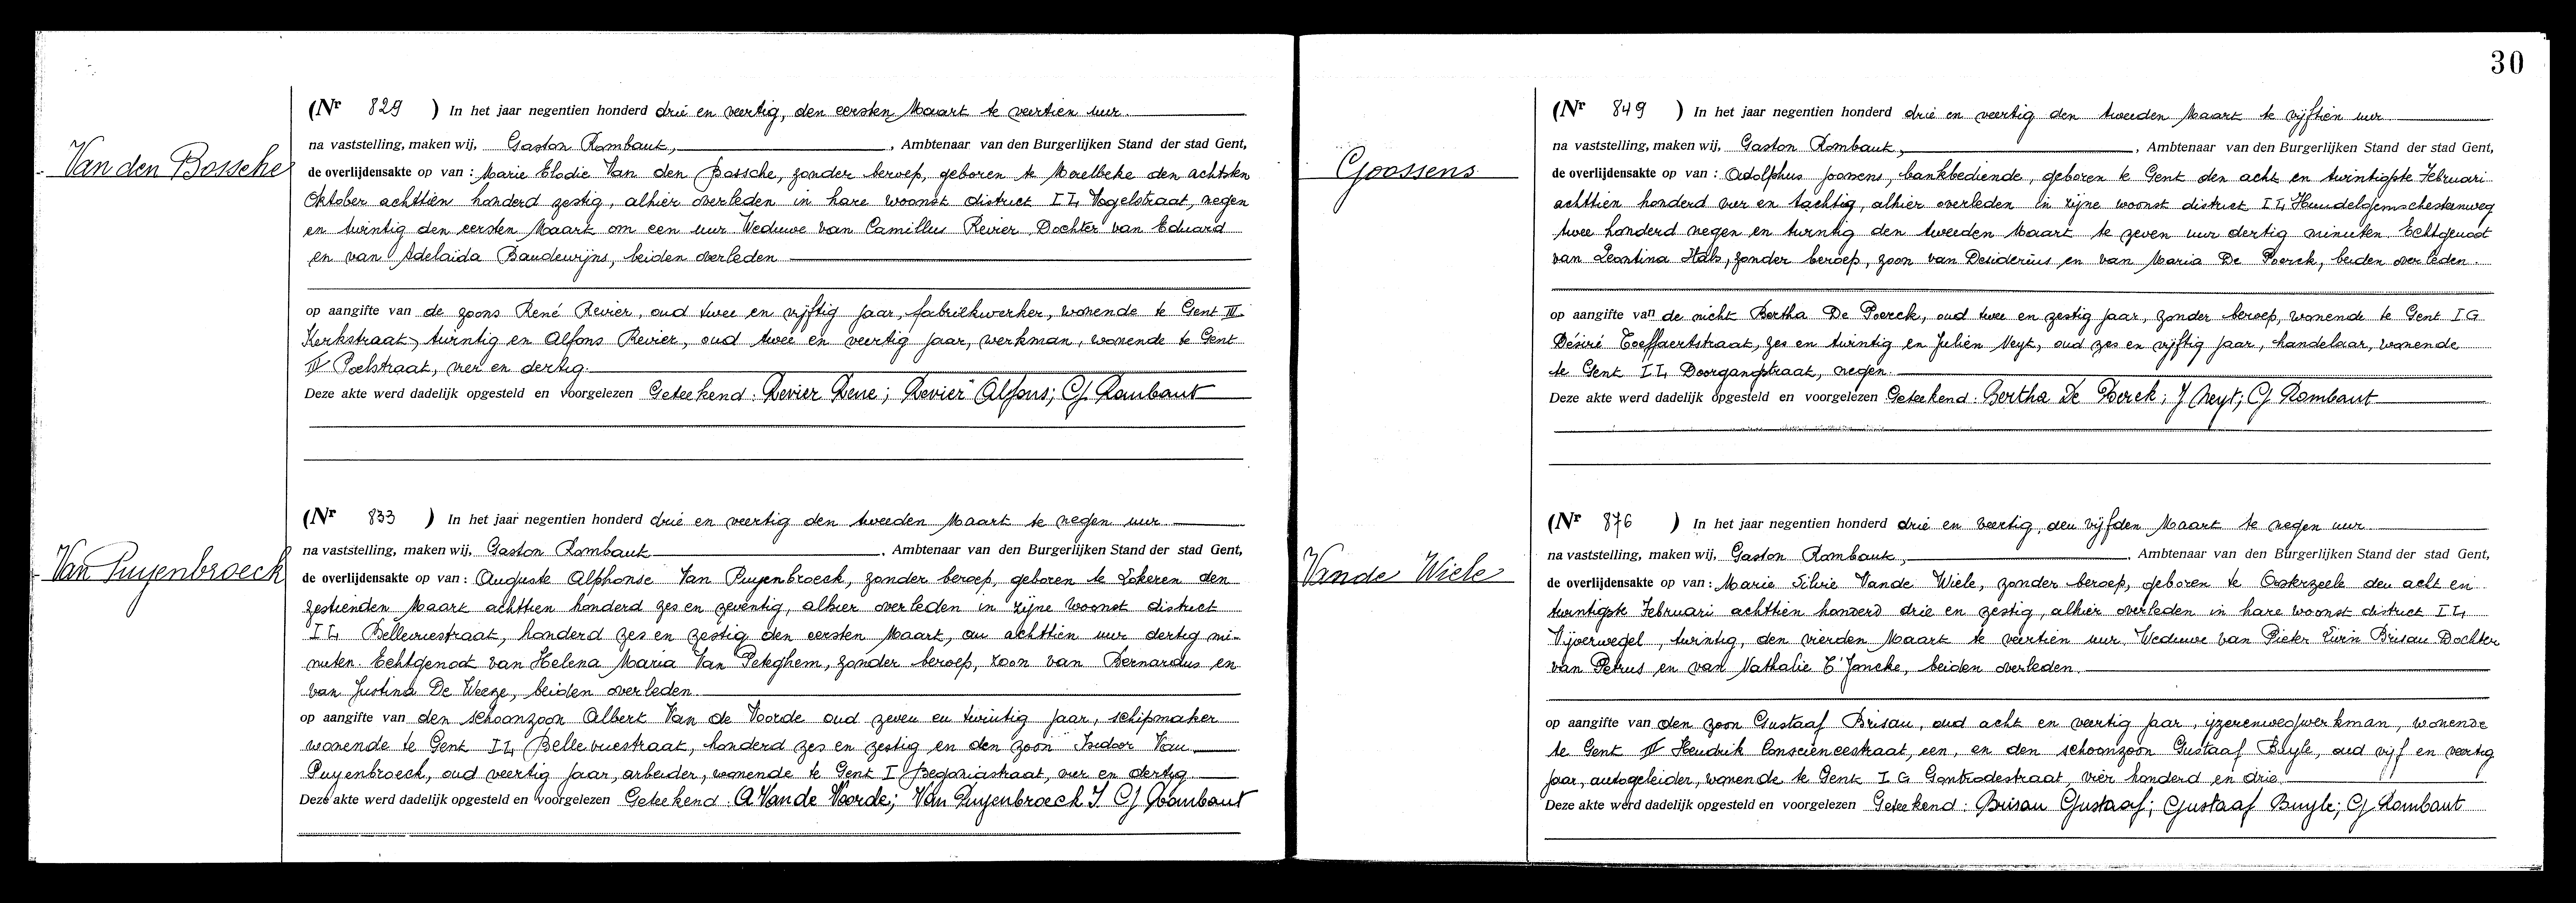 30
Van den Bossche
(Nr 829 ) In het jaar negentien honderd drie en veertig, den eersten Maart te veertien uur.
na vaststelling, maken wij, Gaston Rombaut, , Ambtenaar van den Burgerlijken Stand der stad Gent,
de overlijdensakte op van : Marie Elodie Van den Bossche, zonder beroep, geboren te Merelbeke den achtsten
Oktober achttien honderd zestig, alhier overleden in hare woonst district II4 Vogelstraat, negen
en twintig den eersten Maart om een uur Weduwe van Camillus Revier Dochter van Eduard
en van Adelaïda Baudewijns, beiden overleden
op aangifte van de zoons René Revier, oud twee en vijftig jaar, fabriekwerker, wonende te Gent III
Kerkstraat, twintig en Alfons Revier, oud twee en veertig jaar, werkman, wonende te Gent
IV Poelstraat, vier en dertig.
Deze akte werd dadelijk opgesteld en voorgelezen Geteekend : Revier Rene ; Revier Alfons ; G. Rombaut
Van Puyenbroeck
(Nr 833 ) In het jaar negentien honderd drie en veertig den tweeden Maart te negen uur
na vaststelling, maken wij, Gaston Rombaut , Ambtenaar van den Burgerlijken Stand der stad Gent,
de overlijdensakte op van : Auguste Alphonse Van Puyenbroeck, zonder beroep, geboren te Lokeren den
zestienden Maart achttien honderd zes en zeventig, alhier overleden in zijne woonst district
I4 Bellevuestraat, honderd zes en zestig den eersten Maart, om achttien uur dertig mi-
nuten. Echtgenoot van Helena Maria Van Peteghem, zonder beroep, zoon van Bernardus en
van Justina De Weeze, beiden overleden.
op aangifte van den schoonzoon Albert Van de Voorde oud zeven en twintig jaar, schipmaker
wonende te Gent I4 Bellevuestraat, honderd zes en zestig en den zoon Isidoor Van
Puyenbroeck, oud veertig jaar, arbeider, wonende te Gent I Begoniastraat, vier en dertig
Deze akte werd dadelijk opgesteld en voorgelezen Geteekend : A Van de Voorde ; Van Puyenbroeck I G Rombaut
Goossens
(Nr 849 ) In het jaar negentien honderd drie en veertig den tweeden Maart te vijftien uur
na vaststelling, maken wij, Gaston Rombaut, , Ambtenaar van den Burgerlijken Stand der stad Gent,
de overlijdensakte op van : Adolphus Goossens, bankbediende, geboren te Gent den acht en twintigste Februari
achttien honderd vier en tachtig, alhier overleden in zijne woonst district I4 Hundelgemschesteenweg
twee honderd negen en twintig den tweeden Maart te zeven uur dertig minuten Echtgenoot
van Leontina Hals, zonder beroep, zoon van Desiderius en van Maria De Poerck, beiden overleden.
op aangifte van de nicht Bertha De Poerck, oud twee en zestig jaar, zonder beroep, wonende te Gent I G
Désiré Toeffaertstraat, zes en twintig en Julien Neyt, oud zes en vijftig jaar, handelaar, wonende
te Gent I4 Doorgangstraat, negen.
Deze akte werd dadelijk opgesteld en voorgelezen Geteekend : Bertha De Poerck ; J Neyt ; G Rombaut
Vande Wiele
(Nr 876 ) In het jaar negentien honderd drie en veertig, den vijfden Maart te negen uur
na vaststelling, maken wij, Gaston Rombaut, , Ambtenaar van den Burgerlijken Stand der stad Gent,
de overlijdensakte op van : Marie Silvie Vande Wiele, zonder beroep, geboren te Oosterzeele den acht en
twintigste Februari achttien honderd drie en zestig, alhier overleden in hare woonst district I4
Vijverwegel, twintig, den vierden Maart te veertien uur. Weduwe van Pieter Livin Brisau Dochter
van Petrus en van Nathalie T'Joncke, beiden overleden.
op aangifte van den zoon Gustaaf Brisau, oud acht en veertig jaar, ijzerenwegwerkman, wonende
te Gent IV Hendrik Consciencestraat, een, en den schoonzoon Gustaaf Buyle, oud vijf en veertig
jaar, autogeleider, wonende te Gent I G Gontrodestraat, vier honderd en drie.
Deze akte werd dadelijk opgesteld en voorgelezen Geteekend : Brisau Gustaaf ; Gustaaf Buyle ; G Rombaut